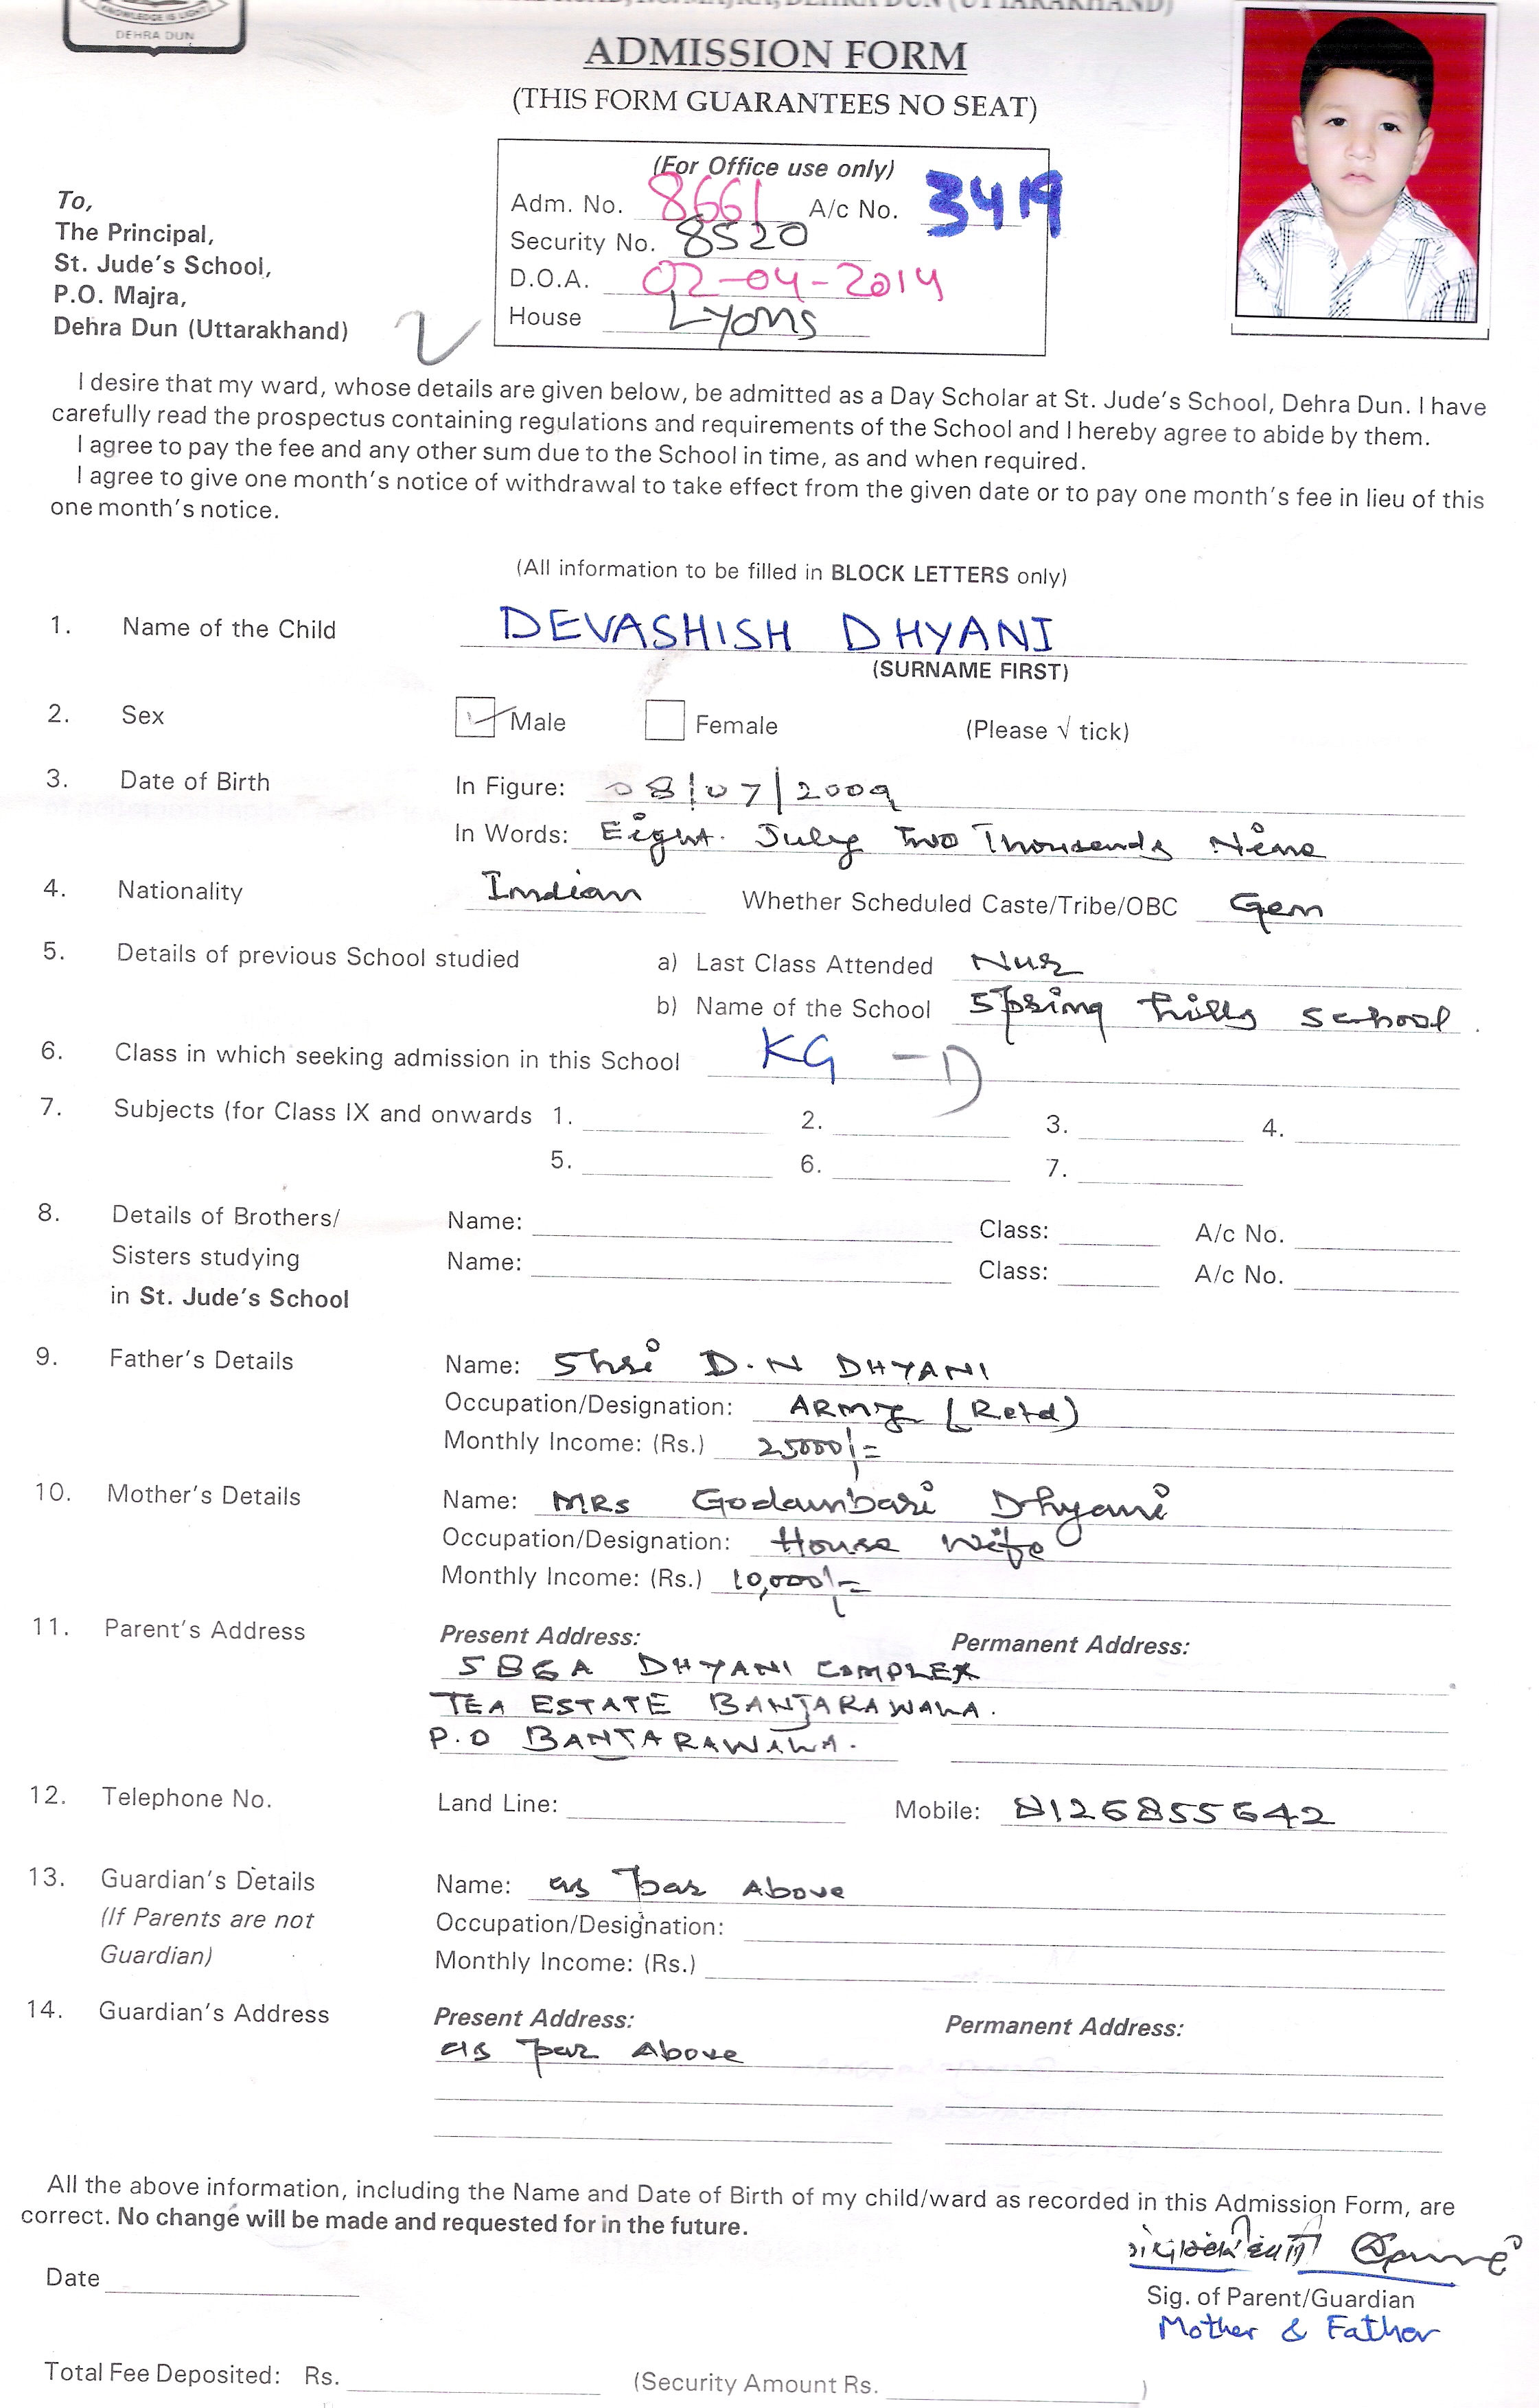 KNOWLEDGE IS LIGHT
DEHRA DUN
ADMISSION FORM
(THIS FORM GUARANTEES NO SEAT)
(For Office use only)
Adm. No. 8661 A/c No. 3419
Security No. 8520
D.O.A. 02-04-2014
House Lyons
To,
The Principal,
St. Jude's School,
P.O. Majra,
Dehra Dun (Uttarakhand)
I desire that my ward, whose details are given below, be admitted as a Day Scholar at St. Jude's School, Dehra Dun. I have
carefully read the prospectus containing regulations and requirements of the School and I hereby agree to abide by them.
I agree to pay the fee and any other sum due to the School in time, as and when required.
I agree to give one month's notice of withdrawal to take effect from the given date or to pay one month's fee in lieu of this
one month's notice.
(All information to be filled in BLOCK LETTERS only)
1. Name of the Child DEVASHISH DHYANI
(SURNAME FIRST)
2. Sex Male Female (Please √ tick)
3. Date of Birth In Figure: 08/07/2009
In Words: Eight. July Two Thousands Nine
4. Nationality Indian Whether Scheduled Caste/Tribe/OBC Gen
5. Details of previous School studied a) Last Class Attended Nur
b) Name of the School Spring hills school.
6. Class in which seeking admission in this School KG - D
7. Subjects (for Class IX and onwards 1. 2. 3. 4.
5. 6. 7.
8. Details of Brothers/ Name: Class: A/c No.
Sisters studying Name: Class: A/c No.
in St. Jude's School
9. Father's Details Name: Shri D.N DHYANI
Occupation/Designation: ARMY (Retd)
Monthly Income: (Rs.) 25000/=
10. Mother's Details Name: MRS Godambari Dhyani
Occupation/Designation: House Wife
Monthly Income: (Rs.) 10,000/=
11. Parent's Address Present Address: Permanent Address:
586A DHYANI COMPLEX
TEA ESTATE BANJARAWALA.
P.O BANJARAWALA.
12. Telephone No. Land Line: Mobile: 8126855642
13. Guardian's Details Name: as par Above
(If Parents are not Occupation/Designation:
Guardian) Monthly Income: (Rs.)
14. Guardian's Address Present Address: Permanent Address:
as par Above
All the above information, including the Name and Date of Birth of my child/ward as recorded in this Admission Form, are
correct. No change will be made and requested for in the future.
Date
Sig. of Parent/Guardian
Mother & Father
Total Fee Deposited: Rs. (Security Amount Rs. )